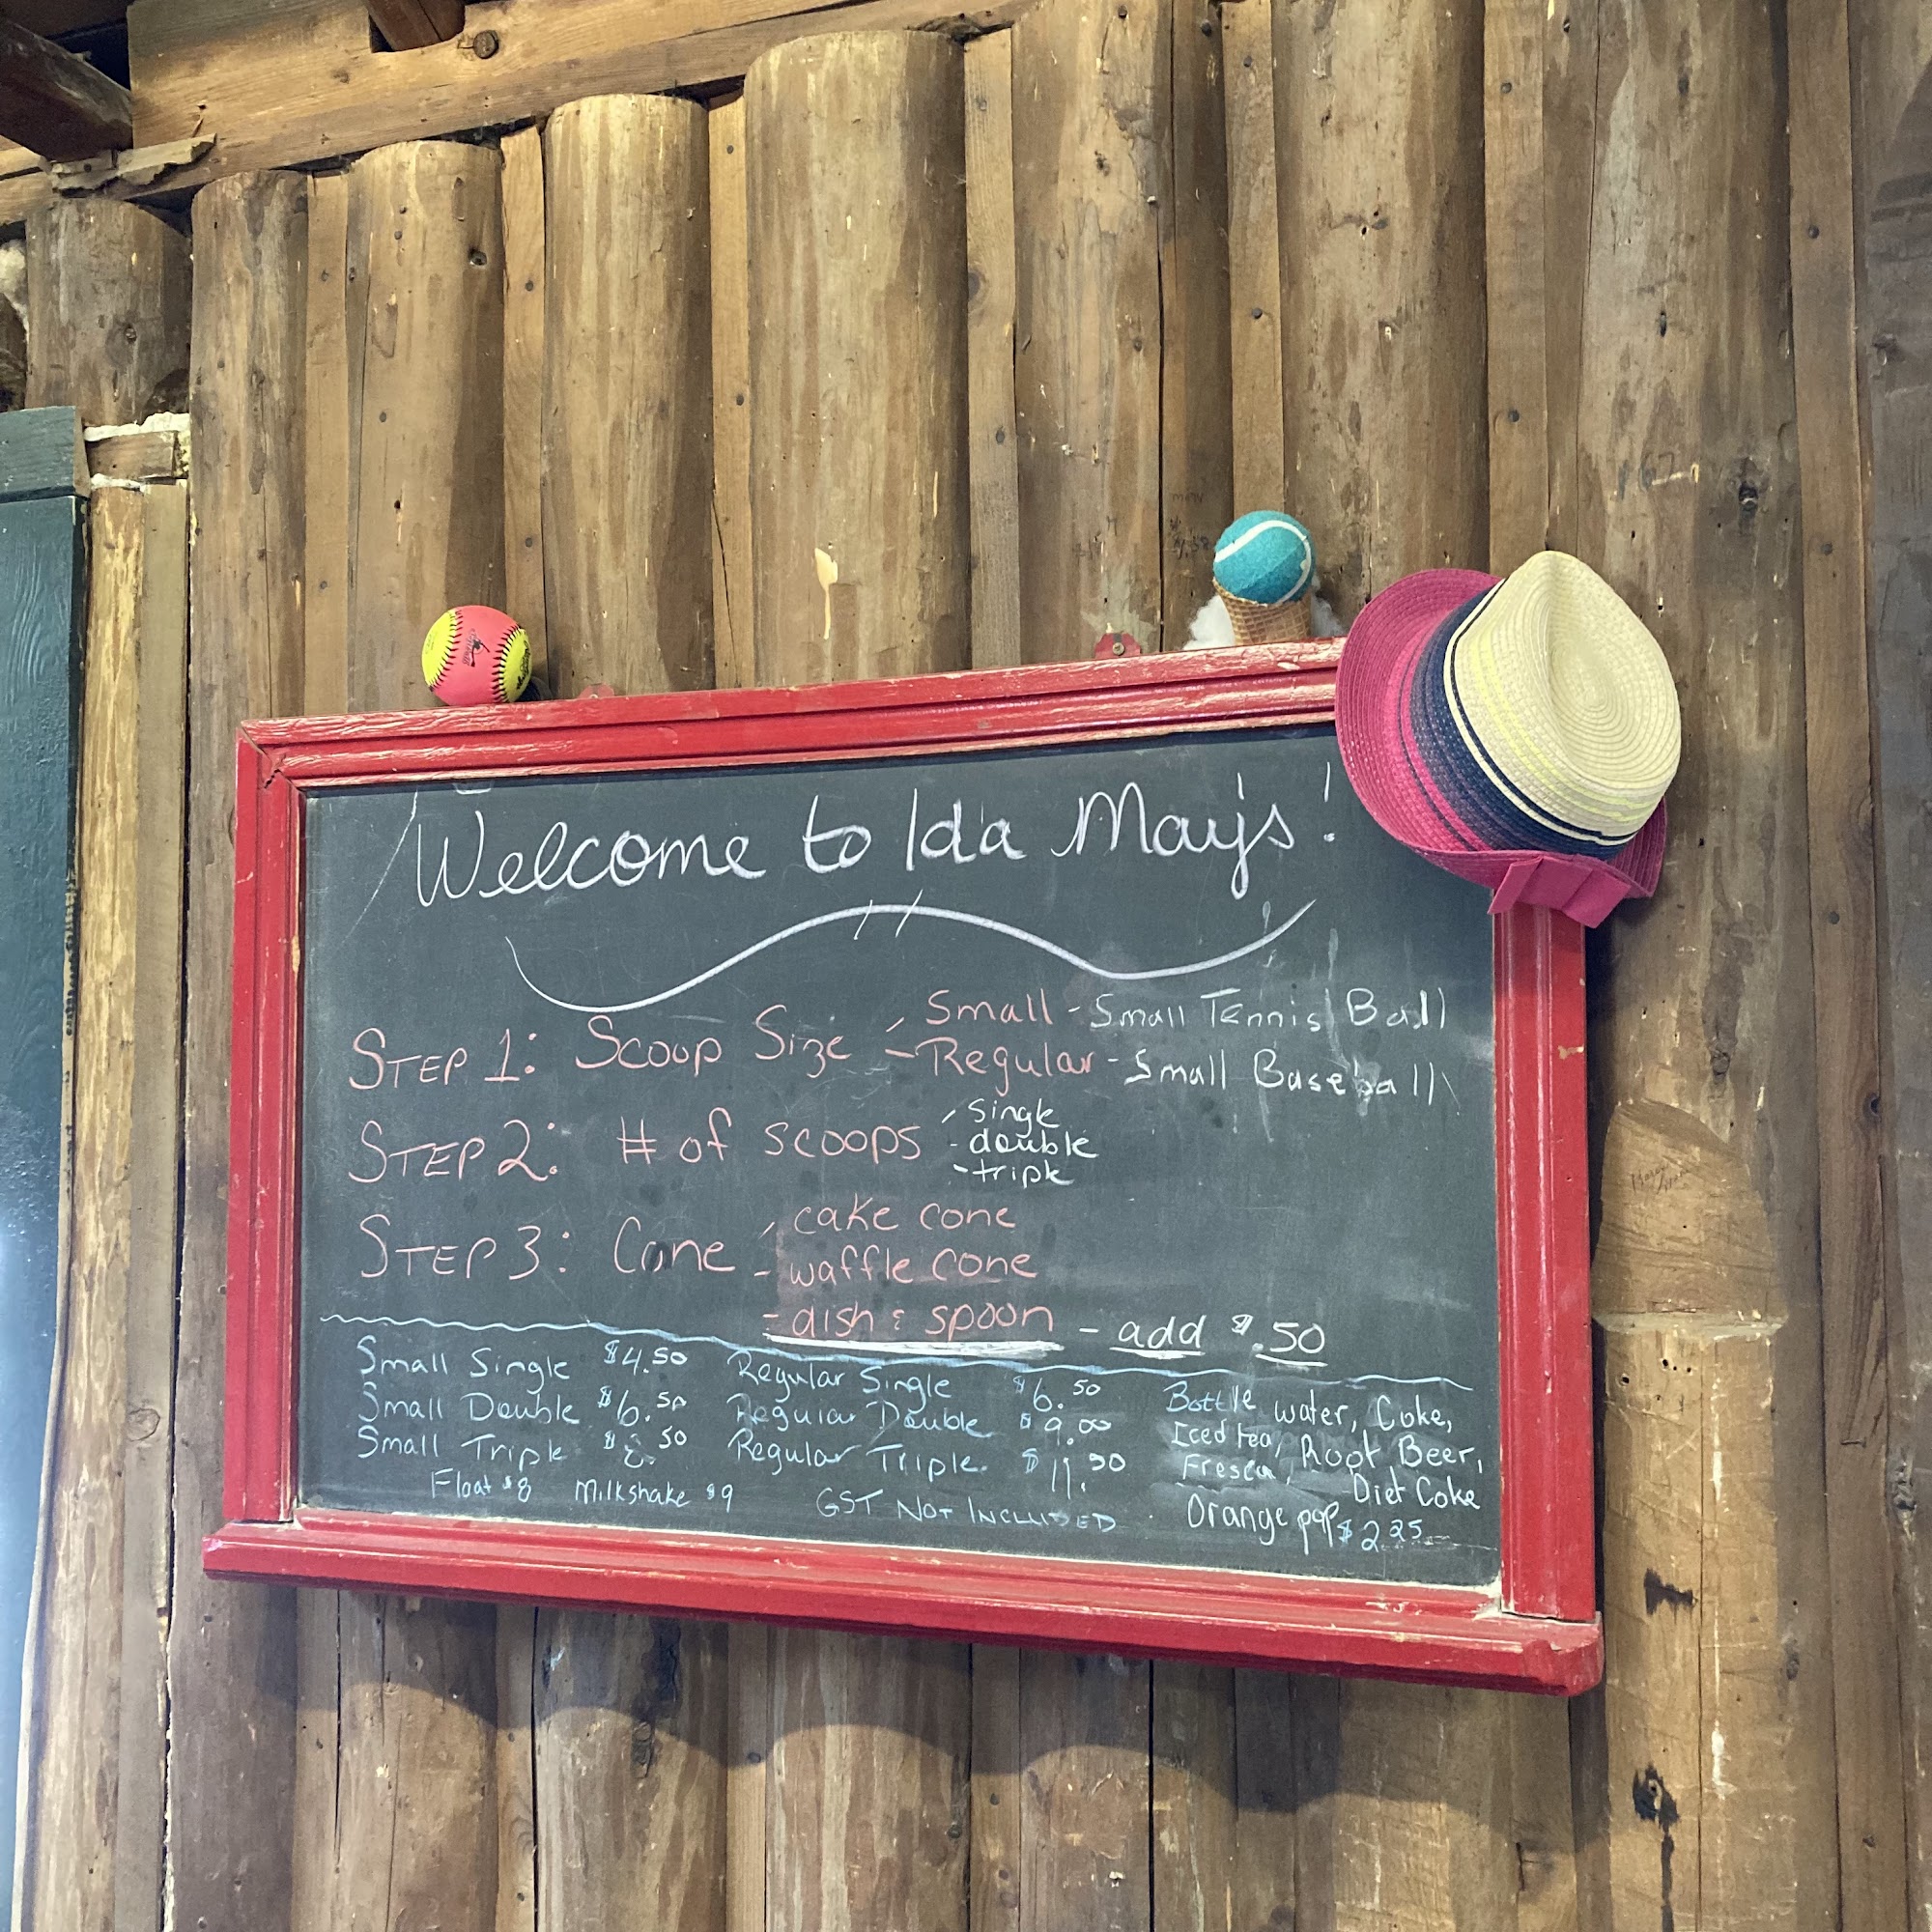 Welcome to Ida May's!
STEP 1: Scoop Size - Small - Small Tennis Ball
- Regular - Small Baseball
STEP 2: # of scoops - single
- double
- triple
STEP 3: Cone - cake cone
- waffle cone
- dish & spoon - add $.50
Small Single $4.50 Regular Single $6.50
Small Double $6.50 Regular Double $9.00
Small Triple $8.50 Regular Triple $11.50
Float $8 Milkshake $9 GST NOT INCLUDED
Bottle water, Coke,
Iced tea, Root Beer,
Fresca, Diet Coke
Orange pop $2.25